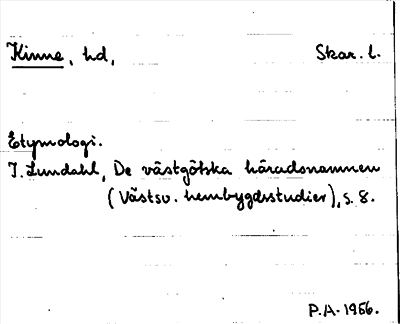 Kinne, hd, Skar. l.
Etymologi.
I. Lundahl, De västgötska häradsnamnen
(Västsv. hembygdsstudier), s. 8.
P.A. 1966.